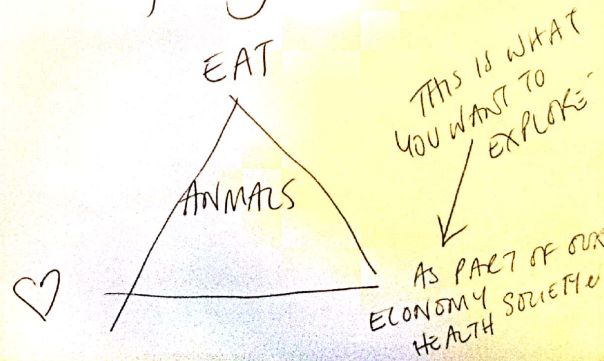 EAT
THIS IS WHAT
YOU WANT TO
EXPLORE
ANMALS
AS PART OF OUR
ECONOMY SOCIETY
HEALTH